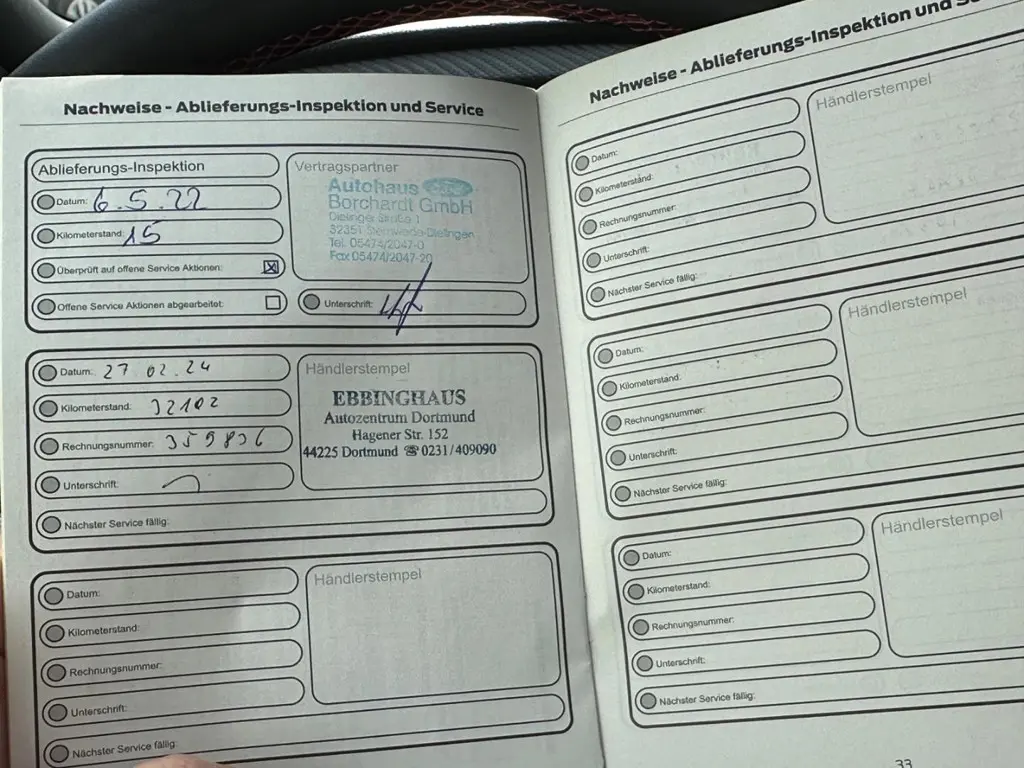 Nachweise - Ablieferungs-Inspektion und Service
Ablieferungs-Inspektion
Datum: 6.5.22
Kilometerstand: 15
Überprüft auf offene Service Aktionen:
Offene Service Aktionen abgearbeitet:
Vertragspartner
Autohaus
Borchardt GmbH
Dielinger Straße 1
32351 Stemwede-Dielingen
Tel. 05474/2047-0
Fax 05474/2047-20
Unterschrift:
Datum: 27 02.24
Kilometerstand: 32102
Rechnungsnummer: 359836
Unterschrift:
Nächster Service fällig:
Händlerstempel
EBBINGHAUS
Autozentrum Dortmund
Hagener Str. 152
44225 Dortmund ☎ 0231/409090
Datum:
Kilometerstand:
Rechnungsnummer:
Unterschrift:
Nächster Service fällig:
Händlerstempel
Nachweise - Ablieferungs-Inspektion und
Datum:
Kilometerstand:
Rechnungsnummer:
Unterschrift:
Nächster Service fällig:
Händlerstempel
Datum:
Kilometerstand:
Rechnungsnummer:
Unterschrift:
Nächster Service fällig:
Händlerstempel
Datum:
Kilometerstand:
Rechnungsnummer:
Unterschrift:
Nächster Service fällig:
Händlerstempel
33